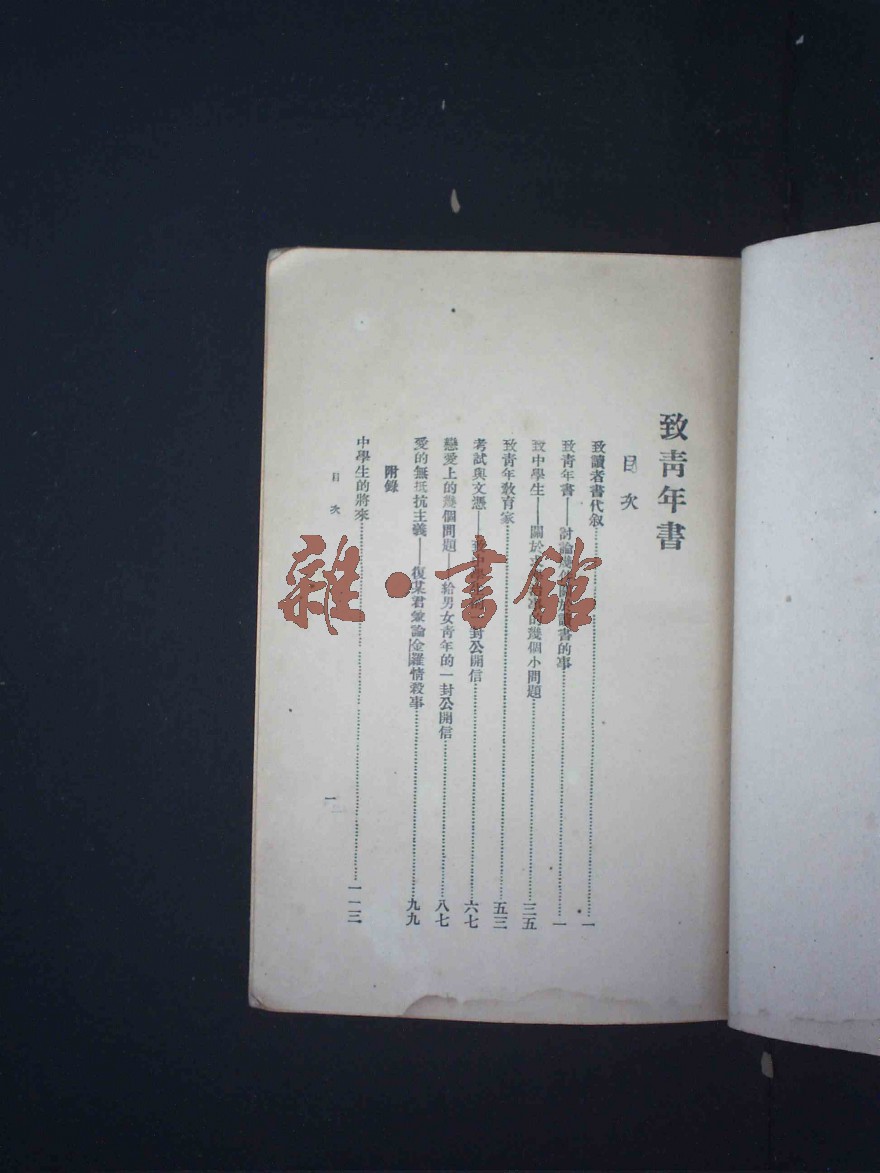 致青年書
目次
致讀者書代敘……一
致青年書——討論幾件關於讀書的事……一
致中學生——關於的幾個小問題……三五
致青年教育家……五三
考試與文憑——致中學封公開信……六七
戀愛上的幾個問題——給男女青年的一封公開信……八七
愛的無抵抗主義——復某君兼論金羅情殺事……九九
附錄
中學生的將來……一一三
目次
一
雜·書館